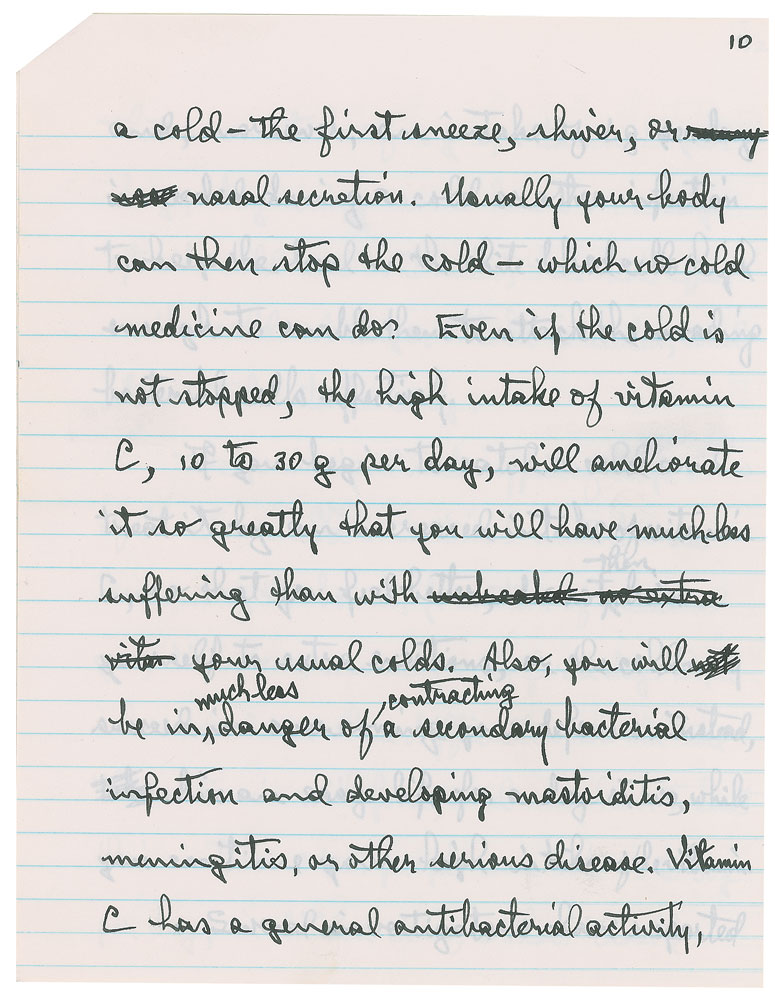 10
a cold – the first sneeze, shiver, or
nasal secretion. Usually your body
can then stop the cold – which no cold
medicine can do? Even if the cold is
not stopped, the high intake of vitamin
C, 10 to 30 g per day, will ameliorate
it so greatly that you will have much less
suffering than with untreated no extra
vita your usual colds. Also, you will not
much less contracting
be in danger of a secondary bacterial
infection and developing mastoiditis,
meningitis, or other serious disease. Vitamin
C has a general antibacterial activity,